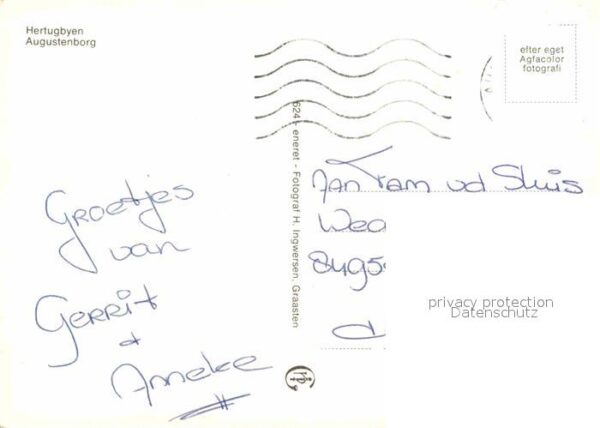 Hertugbyen
Augustenborg
efter eget
Agfacolor
fotografi
624 - eneret - Fotograf H. Ingwersen, Graasten
Groetjes
van
Gerrit
+
Anneke
Fam vd Sluis
privacy protection
Datenschutz